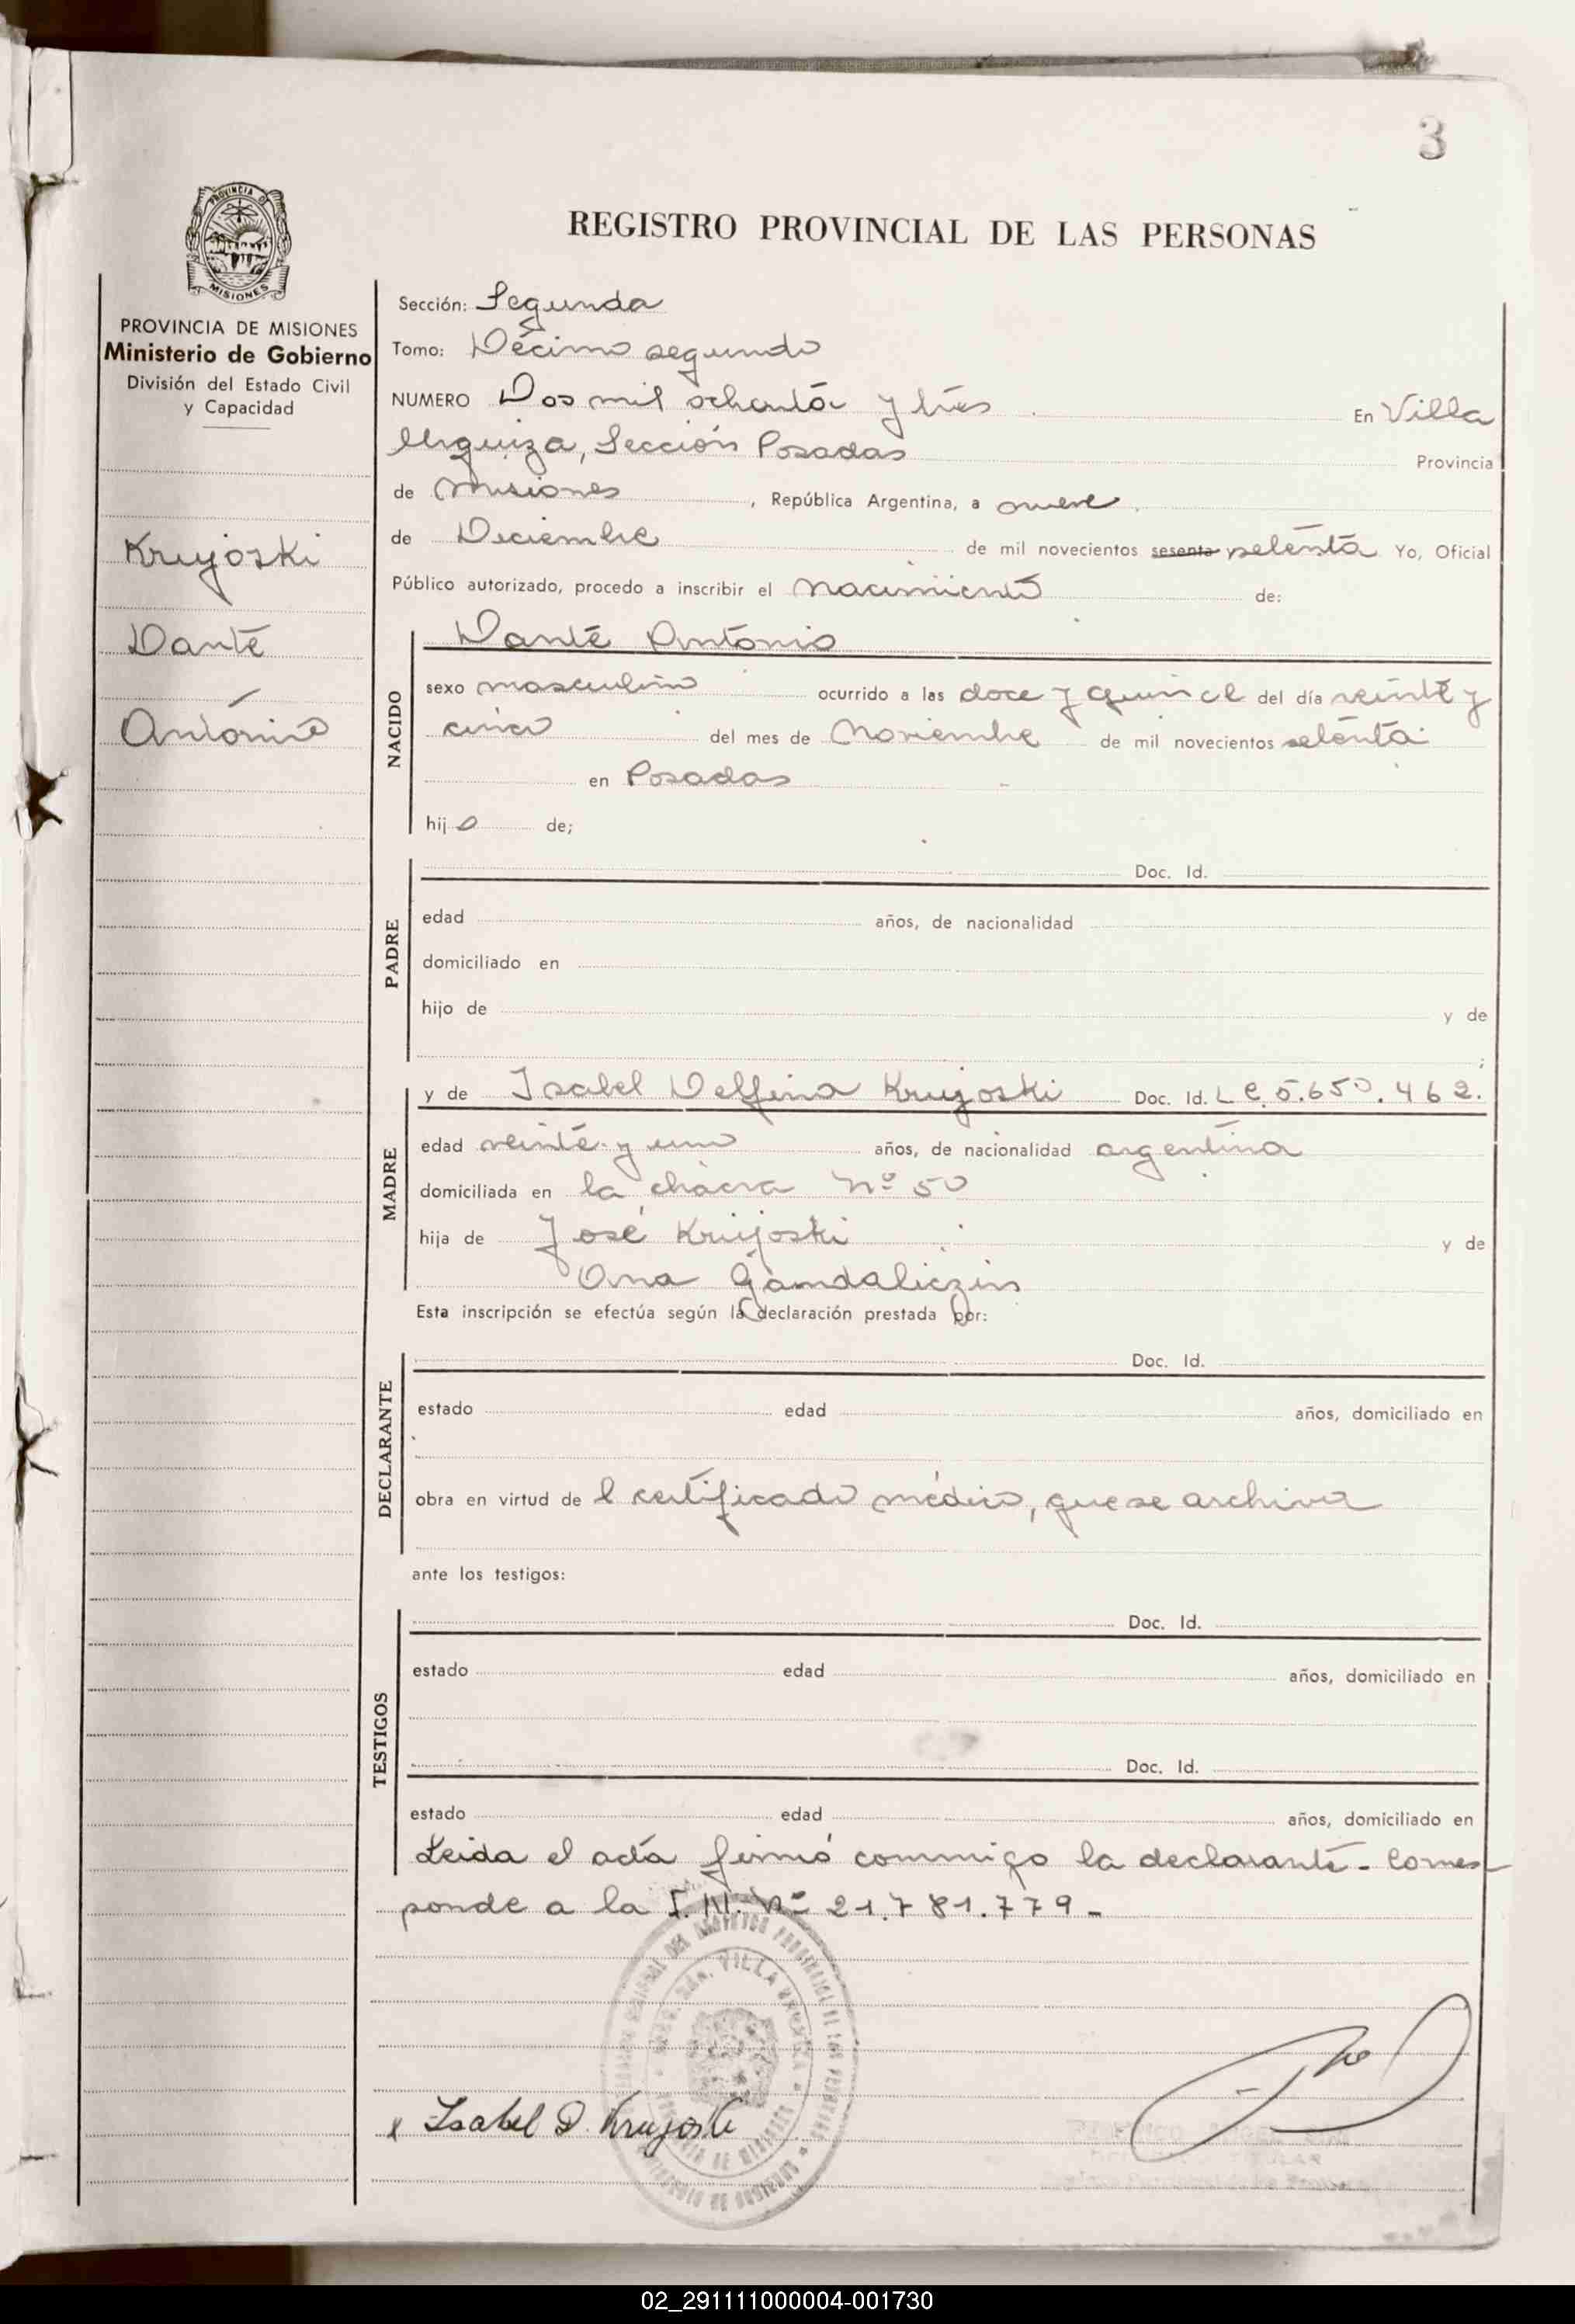 3
PROVINCIA DE MISIONES
REGISTRO PROVINCIAL DE LAS PERSONAS
PROVINCIA DE MISIONES
Ministerio de Gobierno
División del Estado Civil
y Capacidad
Krujoski
Dante
Antonio
Sección: Segunda
Tomo: Décimo segundo
NUMERO Dos mil ochenta y tres En Villa
Urquiza, Sección Posadas Provincia
de Misiones, República Argentina, a nueve
de Diciembre de mil novecientos sesenta setenta Yo, Oficial
Público autorizado, procedo a inscribir el nacimiento de:
NACIDO
Dante Antonio
sexo masculino ocurrido a las doce y quince del día veinte y
cinco del mes de Noviembre de mil novecientos setenta
en Posadas
hijo de;
PADRE
Doc. Id.
edad años, de nacionalidad
domiciliado en
hijo de y de
;
MADRE
y de Isabel Delfina Krujoski Doc. Id. L C. 5.650.462.
edad veinte y uno años, de nacionalidad argentina
domiciliada en la chacra Nº 50
hija de José Krujoski y de
Ana Gandaliczin
Esta inscripción se efectúa según la declaración prestada por:
DECLARANTE
Doc. Id.
estado edad años, domiciliado en
obra en virtud de l certificado médico, que se archiva
ante los testigos:
TESTIGOS
Doc. Id.
estado edad años, domiciliado en
Doc. Id.
estado edad años, domiciliado en
Leida el acta firmó conmigo la declarante - Corres
ponde a la I. M. Nº 21.781.779 -
VILLA URQUIZA
PROVINCIA DE MISIONES
MINISTERIO DE GOBIERNO
x Isabel D. Krujoski
02_291111000004-001730